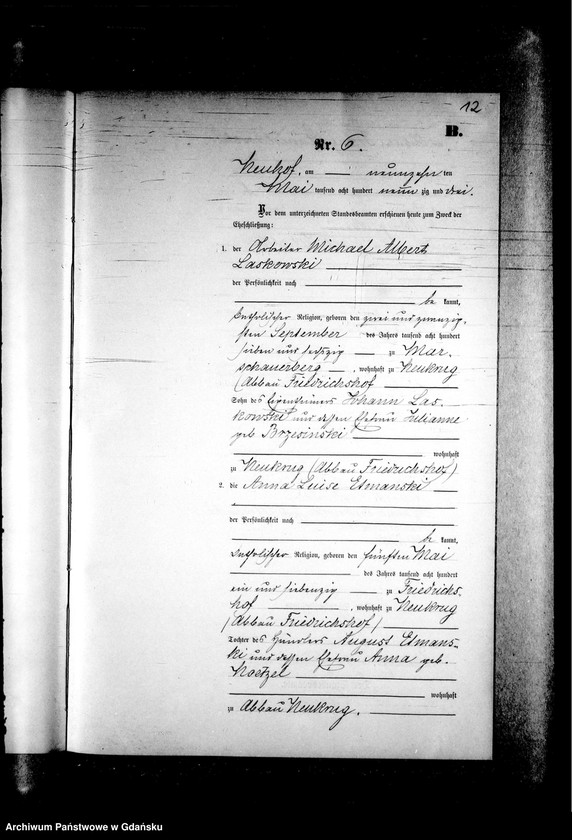 12
B.
Nr. 6.
Neukrug, am — neunzehn ten
Mai tausend acht hundert neun zig und drei.
Vor dem unterzeichneten Standesbeamten erschienen heute zum Zweck der
Eheschließung:
1. der Arbeiter Michael Albert
Laskowski
der Persönlichkeit nach
be kannt,
katholischer Religion, geboren den zwei und zwanzig-
sten September des Jahres tausend acht hundert
sieben und sechszig — zu Mar-
schauerberg, wohnhaft zu Neukrug
(Abbau Friedrichshof
Sohn des Eigenthümers Johann Las-
kowski und dessen Ehefrau Julianne
geb. Brzesinski
wohnhaft
zu Neukrug (Abbau Friedrichshof)
2. die Anna Luise Etmanski
der Persönlichkeit nach
be kannt,
katholischer Religion, geboren den fünften Mai
des Jahres tausend acht hundert
ein und siebenzig — zu Friedrichs-
hof, wohnhaft zu Neukrug
(Abbau Friedrichshof)
Tochter des Händlers August Etmans-
ki und dessen Ehefrau Anna geb.
Noetzel
wohnhaft
zu Abbau Neukrug.
Archiwum Państwowe w Gdańsku